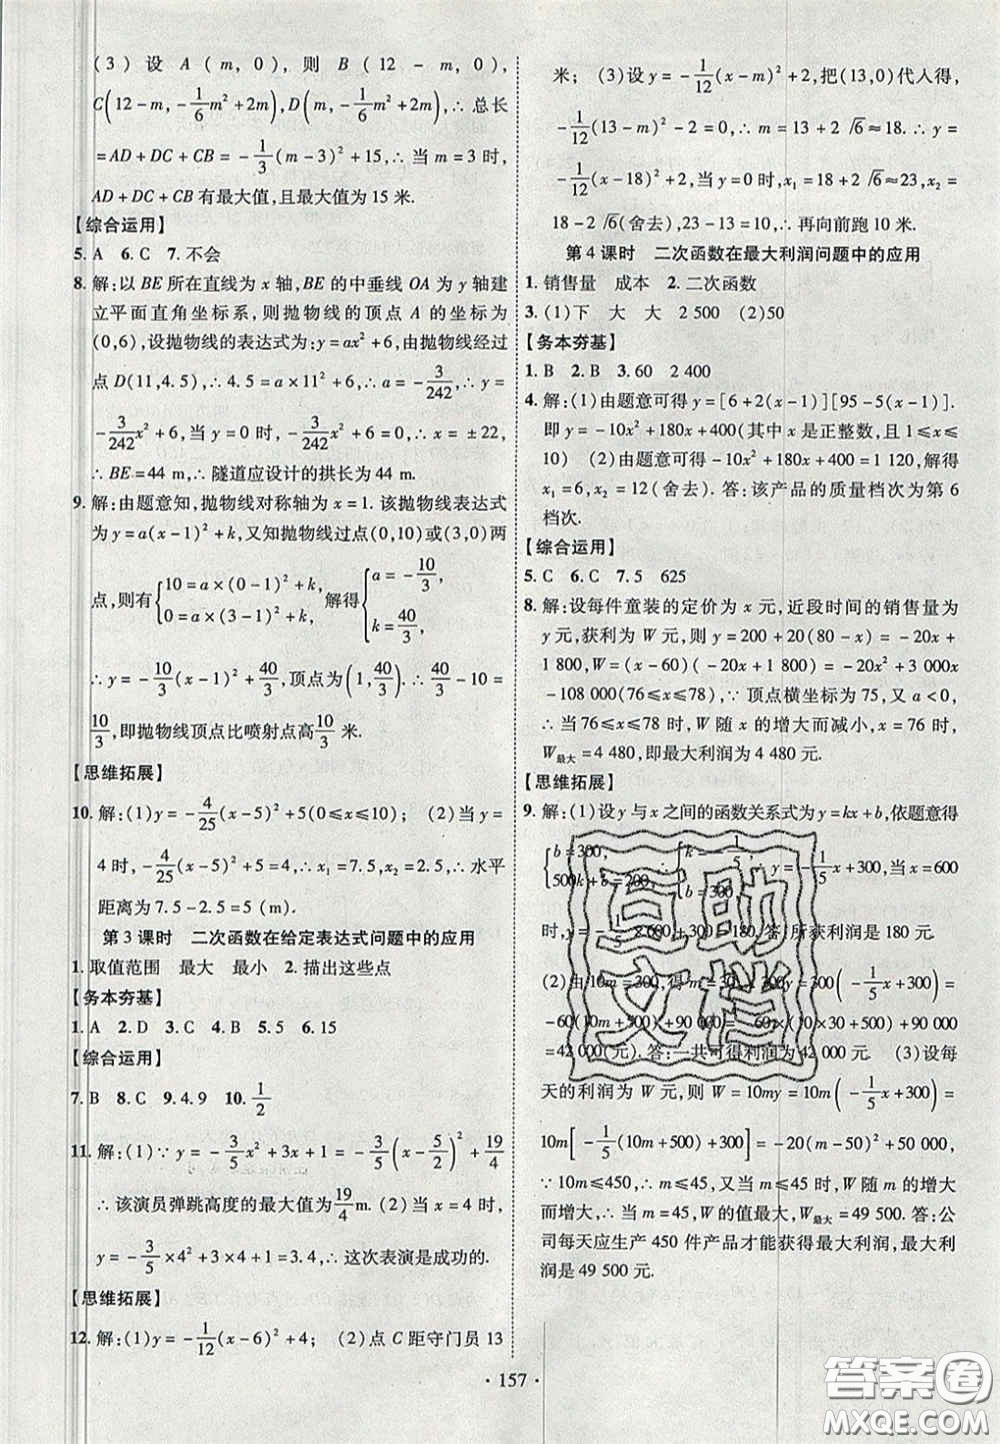 (3) 设 A (m, 0), 则 B (12 - m, 0),
C(12-m,-1/6m²+2m),D(m,-1/6m²+2m),∴ 总长
=AD+DC+CB=-1/3(m-3)²+15,∴ 当 m=3 时,
AD+DC+CB 有最大值,且最大值为 15 米.
【综合运用】
5. A 6. C 7. 不会
8. 解:以 BE 所在直线为 x 轴,BE 的中垂线 OA 为 y 轴建
立平面直角坐标系,则抛物线的顶点 A 的坐标为
(0,6),设抛物线的表达式为:y=ax²+6,由抛物线经过
点 D(11,4.5),∴4.5=a×11²+6,∴a=-3/242,∴y=
-3/242x²+6,当 y=0 时,-3/242x²+6=0,∴x=±22,
∴BE=44 m,∴隧道应设计的拱长为 44 m.
9. 解:由题意知,抛物线对称轴为 x=1. 该抛物线表达式
为 y=a(x-1)²+k,又知抛物线过点(0,10)或(3,0)两
点,则有{10=a×(0-1)²+k, 0=a×(3-1)²+k. 解得{a=-10/3, k=40/3.
∴y=-10/3(x-1)²+40/3,顶点为(1,40/3).∴40/3-10=
10/3,即抛物线顶点比喷射点高10/3米.
【思维拓展】
10. 解:(1)y=-4/25(x-5)²+5(0≤x≤10); (2)当 y=
4时,-4/25(x-5)²+5=4,∴x₁=7.5,x₂=2.5,∴水平
距离为7.5-2.5=5(m).
第 3 课时 二次函数在给定表达式问题中的应用
1. 取值范围 最大 最小 2. 描出这些点
【务本夯基】
1. A 2. D 3. C 4. B 5. 5 6. 15
【综合运用】
7. B 8. C 9. 4.9 10. 1/2
11. 解:(1)∵y=-3/5x²+3x+1=-3/5(x-5/2)²+19/4
∴该演员弹跳高度的最大值为19/4m. (2)当 x=4时,
y=-3/5×4²+3×4+1=3.4,∴这次表演是成功的.
【思维拓展】
12. 解:(1)y=-1/12(x-6)²+4; (2)点 C 距守门员 13
米; (3)设 y=-1/12(x-m)²+2,把(13,0)代人得,
-1/12(13-m)²-2=0,∴m=13+2√6≈18.∴y=
-1/12(x-18)²+2,当 y=0 时,x₁=18+2√6≈23,x₂=
18-2√6(舍去),23-13=10,∴再向前跑 10 米.
第 4 课时 二次函数在最大利润问题中的应用
1. 销售量 成本 2. 二次函数
3. (1)下 大 大 2 500 (2)50
【务本夯基】
1. B 2. B 3. 60 2 400
4. 解:(1)由题意可得 y=[6+2(x-1)][95-5(x-1)].
即 y=-10x²+180x+400(其中 x 是正整数,且 1≤x≤
10) (2)由题意可得-10x²+180x+400=1 120,解得
x₁=6,x₂=12(舍去). 答:该产品的质量档次为第 6
档次.
【综合运用】
5. C 6. C 7. 5 625
8. 解:设每件童装的定价为 x 元,近段时间的销售量为
y 元,获利为 W 元,则 y=200+20(80-x)=-20x+
1 800,W=(x-60)(-20x+1 800)=-20x²+3 000x
-108 000(76≤x≤78),∵顶点横坐标为 75,又 a<0,
∴当 76≤x≤78 时,W 随 x 的增大而减小,x=76 时,
W最大=4 480,即最大利润为 4 480 元.
【思维拓展】
9. 解:(1)设 y 与 x 之间的函数关系式为 y=kx+b,依题意得
{b=300, 500k+b=200, ∴{k=-1/5, b=300. ∴y=-1/5x+300,当 x=600
时,y=-1/5×600+300=180. 答:所获利润是 180 元.
(2)由 10m=300,得 m=30,x=300 y=300(-1/5x+300)=
-60(10m+500)+90 000=-60×(10×30+500)+90 000
=42 000(元). 答:一共可得利润为 42 000 元. (3)设每
天的利润为 W 元,则 W=10my=10m(-1/5x+300)=
10m[-1/5(10m+500)+300]=-20(m-50)²+50 000,
∵10m≤450,∴m≤45,又当 m≤45 时,W 随 m 的增大
而增大,∴当 m=45,W 的值最大,W最大=49 500. 答:公
司每天应生产 450 件产品才能获得最大利润,最大利
润是 49 500 元.
· 157 ·
互助
文档
答案圈
MXQE.COM